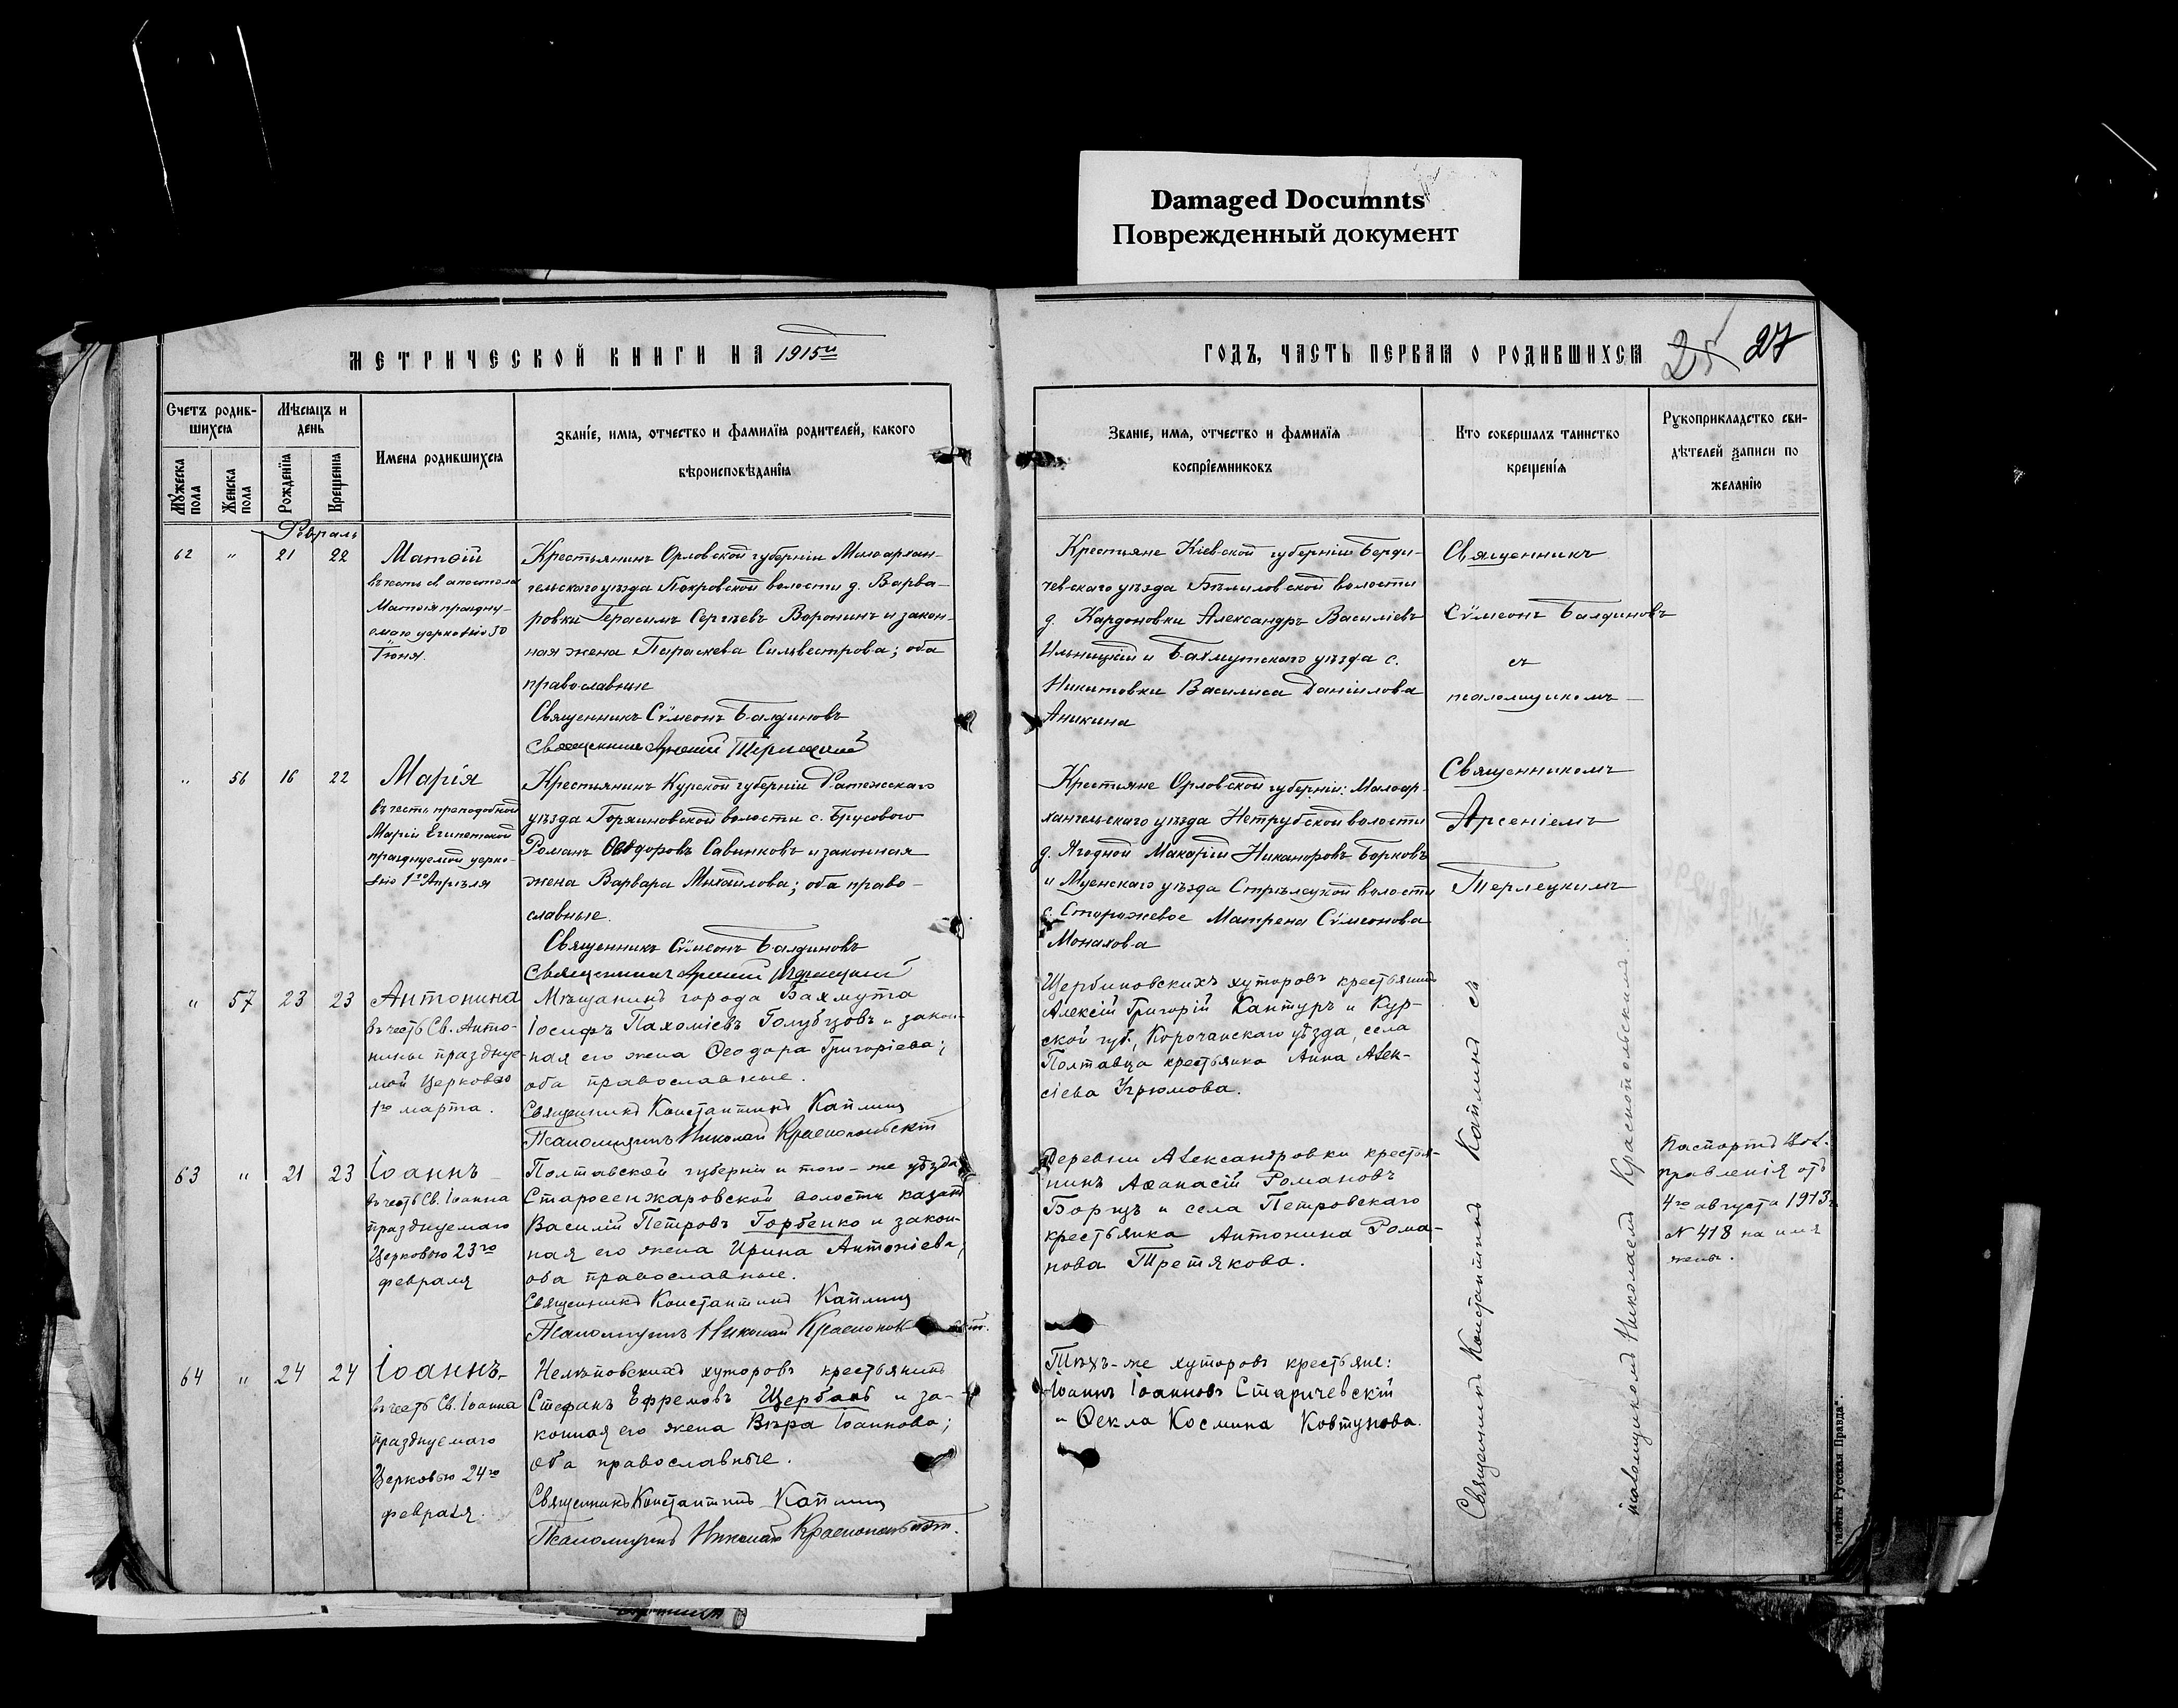 Damaged Documnts
Поврежденный документ
МЕТРИЧЕСКОЙ КНИГИ НА 1915й
ГОДЪ, ЧАСТЬ ПЕРВАЯ О РОДИВШИХСЯ
25 27
Счетъ родив-
шихся
Мѣсяцъ и
день
Мужеска пола
Женска пола
Рожденія
Крещенія
Имена родившихся
Званіе, имя, отчество и фамилія родителей, какого
вѣроисповѣданія
Званіе, имя, отчество и фамилія
воспріемниковъ
Кто совершалъ таинство
крещенія
Рукоприкладство сви-
дѣтелей записи по
желанію
Февраль
62 " 21 22
Матѳій
въ честь св. апостола
Матѳія праздну-
емаго церковью 30
Іюня.
Крестьянинъ Орловской губерніи Малоархан-
гельскаго уѣзда Покровской волости д. Варва-
ровки Герасимъ Сергѣевъ Воронинъ и закон-
ная жена Параскева Сильвестрова; оба
православные
Священникъ Сѵмеонъ Балдиновъ
Священникъ Арсеній Терлецкій
Крестьяне Кіевской губерніи Берди-
чевскаго уѣзда Бѣлиловской волости
д. Кардоновки Александръ Василіевъ
Ильницкій и Бахмутскаго уѣзда с.
Никитовки Василиса Даніилова
Аникина
Священникъ
Сѵмеонъ Балдиновъ
съ
псаломщикомъ
" 56 16 22
Марія
въ честь преподобной
Маріи Египетской
празднуемой церко-
вью 1го Апрѣля
Крестьянинъ Курской губерніи Фатежскаго
уѣзда Горяиновской волости с. Брусового
Романъ Ѳеодоровъ Савинковъ и законная
жена Варвара Михайлова; оба право-
славные.
Священникъ Сѵмеонъ Балдиновъ
Священникъ Арсеній Терлецкій
Крестьяне Орловской губерніи: Малоар-
хангельскаго уѣзда Нетрубской волости
д. Ягодной Макарій Никаноровъ Борковъ
и Мценскаго уѣзда Стрѣлецкой волости
с. Сторожевое Матрена Сѵмеонова
Монахова
Священникомъ
Арсеніемъ
Терлецкимъ
" 57 23 23
Антонина
въ честь Св. Анто-
нины празднуе-
мой Церковью
1го марта.
Мѣщанинъ города Бахмута
Іосифъ Пахоміевъ Голубцовъ и закон-
ная его жена Ѳеодора Григоріева;
оба православные.
Священникъ Константинъ Каплинъ
Псаломщикъ Николай Краснопольскій
Щербиновскихъ хуторовъ крестьянинъ
Алексій Григорій Кантуръ и Кур-
ской губ., Корочанскаго уѣзда, села
Полтавца крестьянка Анна Алек-
сіева Угрюмова.
63 " 21 23
Іоаннъ
въ честь Св. Іоанна
празднуемаго
Церковью 23го
февраля
Полтавской губерніи и того-же уѣзда
Старосенжаровской волости казакъ
Василій Петровъ Горбенко и закон-
ная его жена Ирина Антоніева;
оба православные.
Священникъ Константинъ Каплинъ
Псаломщикъ Николай
Деревни Александровки крестья-
нинъ Аѳанасій Романовъ
Борцъ и села Петровскаго
крестьянка Антонина Рома-
нова Третякова.
Паспортъ Вол.
правленія отъ
4го августа 1913г.
№ 418 на имя
жены.
64 " 24 24
Іоаннъ
въ честь Св. Іоанна
празднуемаго
Церковью 24го
февраля.
Нелѣповскихъ хуторовъ крестьянинъ
Стефанъ Ефремовъ Щербакъ и за-
конная его жена Вѣра Іоаннова;
оба православные.
Священникъ Константинъ Каплинъ
Псаломщикъ Николай Краснопольскій.
Тѣхъ-же хуторовъ крестьяне:
Іоаннъ Іоанновъ Старичевскій
и Ѳекла Космина Ковтунова.
Священникъ Константинъ Каплинъ съ
псаломщикомъ Николаемъ Краснопольскимъ.
газеты Русская Правда".